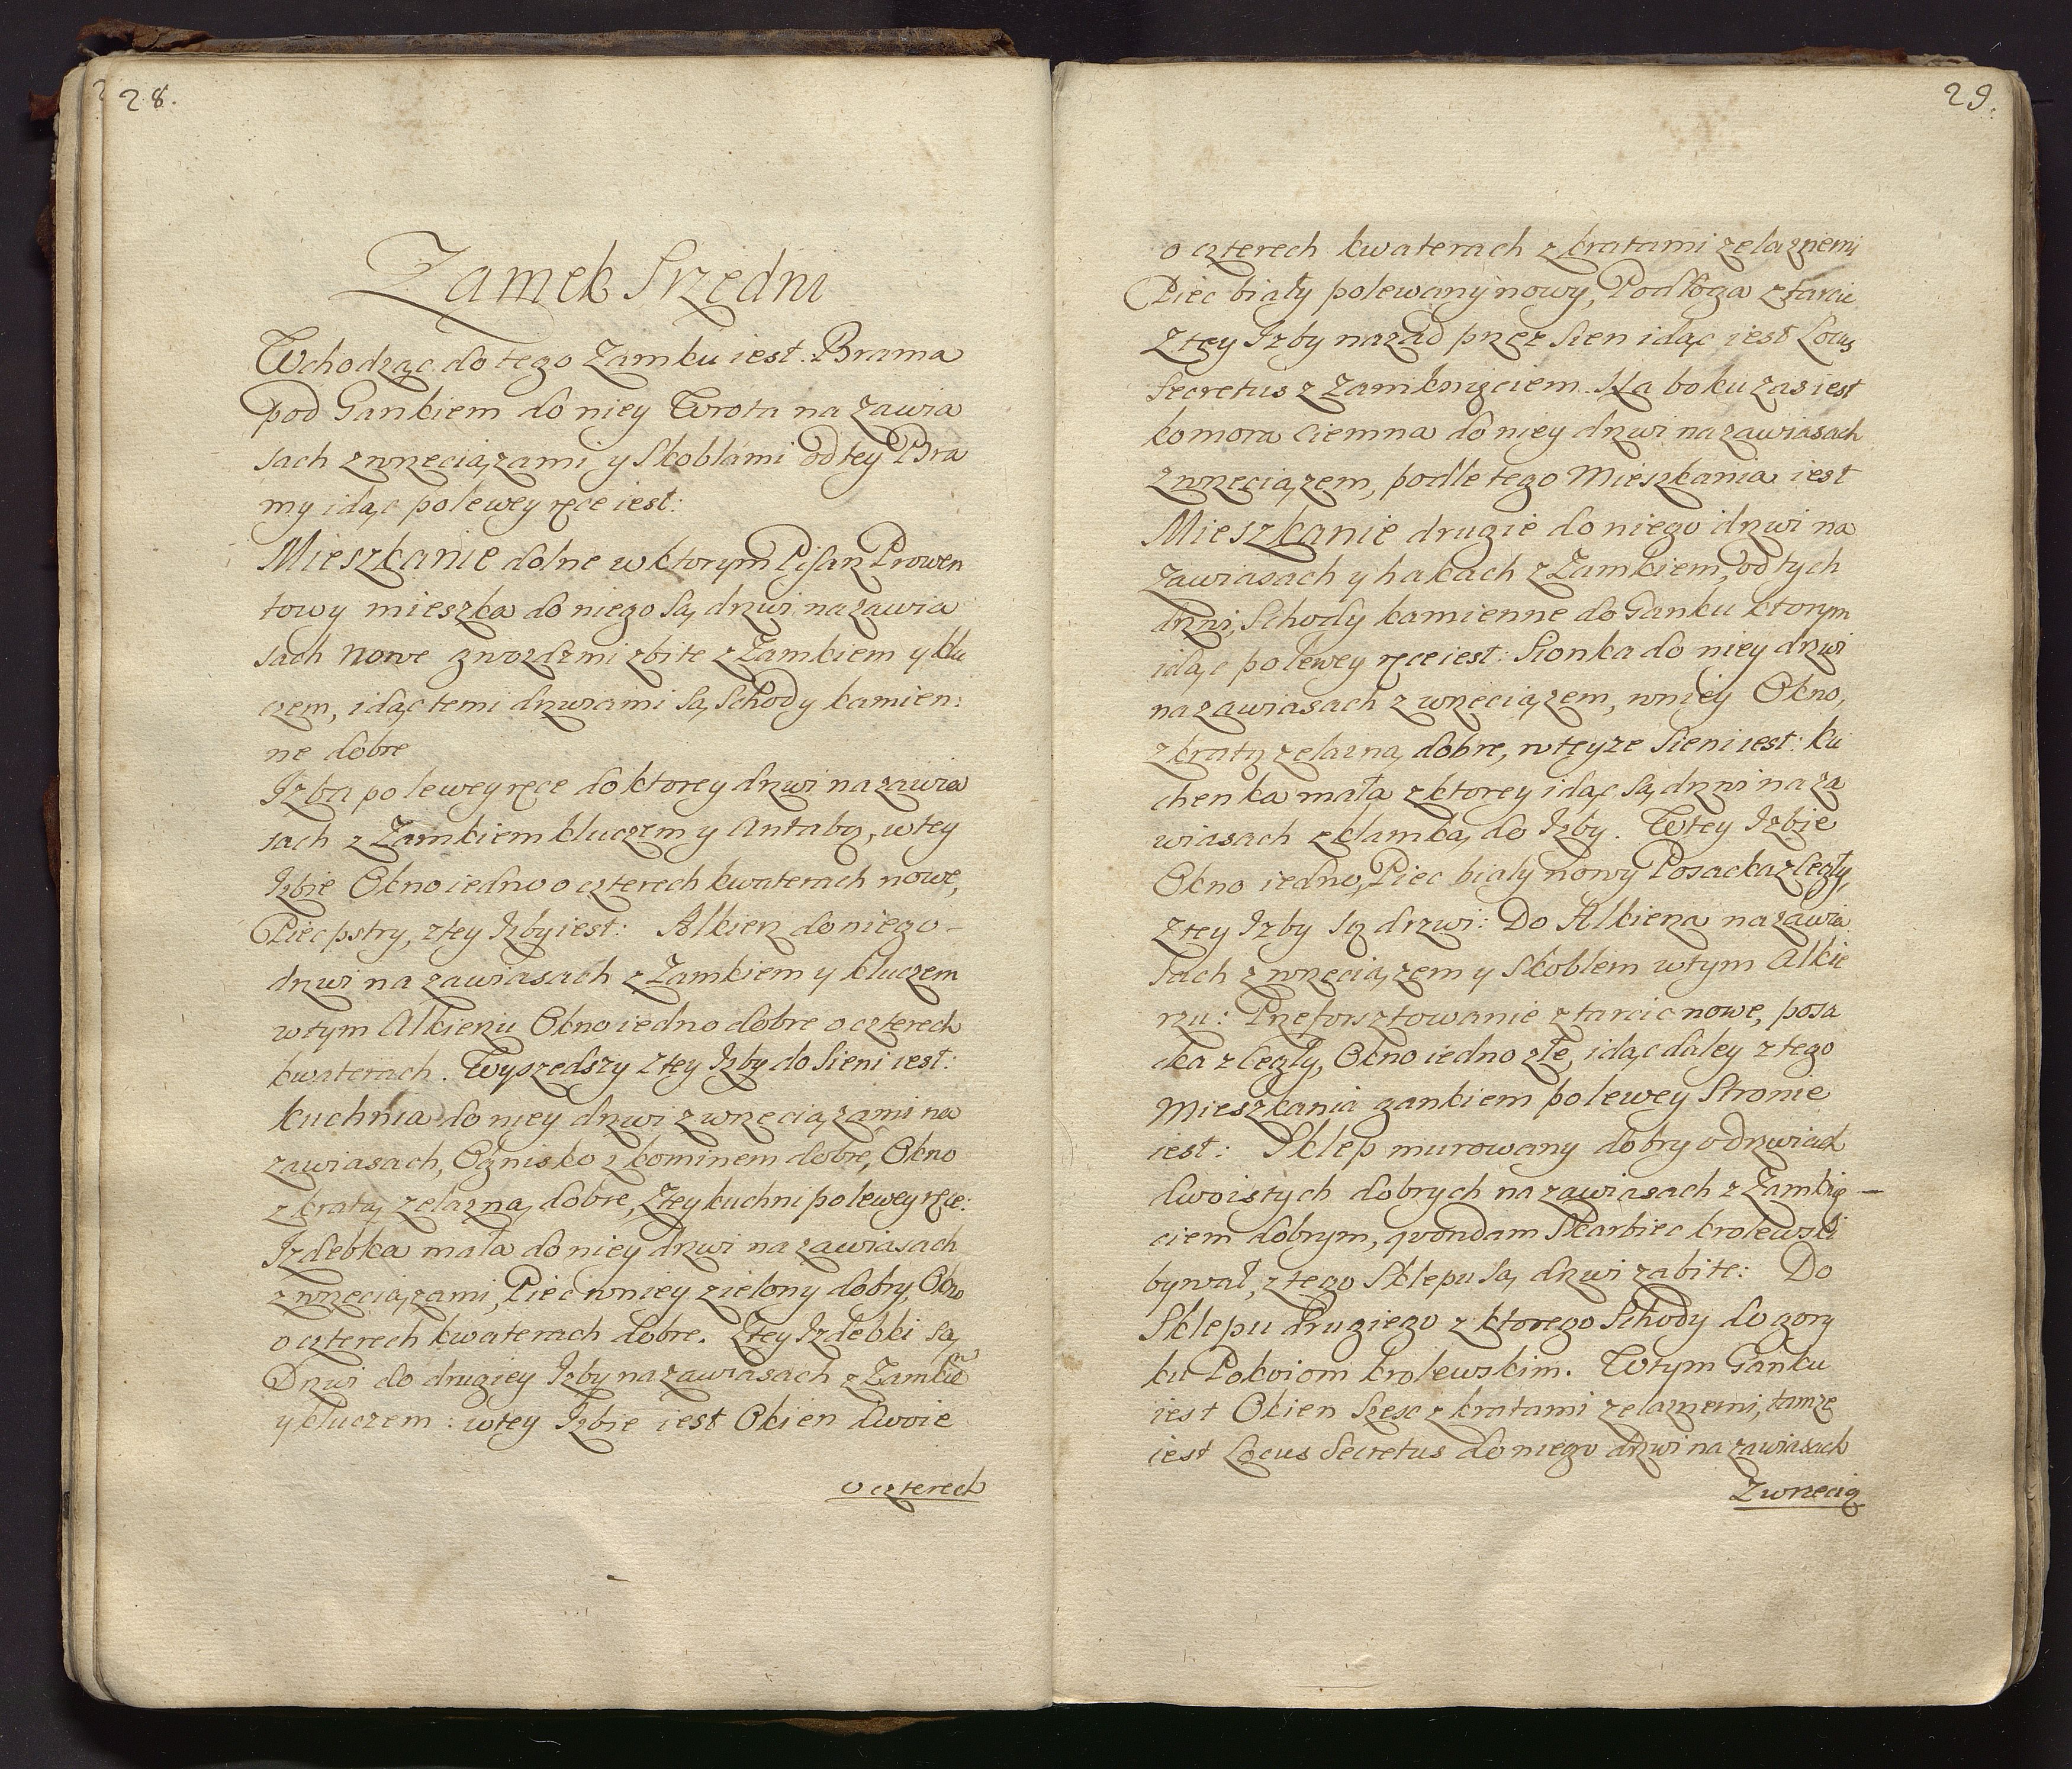 28.
Zamek Srzedni
Wchodząc do tego Zamku iest. Brama
pod Gankiem do niey Wrota na zawia
sach z wrzeciązami y Skoblami od tey Bra
my idąc po lewey ręce iest:
Mieszkanie dolne w ktorym Pisarz Prowen
towy mieszka do niego są drzwi na zawia
sach nowe gwozdzmi zbite z Zamkiem y klu
czem, idąc temi drzwiami są Schody kamien:
ne dobre
Izba po lewey ręce do ktorey drzwi na zawia
sach z Zamkiem kluczem y Antabą, w tey
Izbie Okno iedno o czterech kwaterach nowe,
Piec pstry, z tey Izby iest: Alkierz do niego -
drzwi na zawiasach z Zamkiem y kluczem
w tym Alkierzu Okno iedno dobre o czterech
kwaterach. Wyszedszy z tey Izby do Sieni iest:
kuchnia do niey drzwi z wrzeciązami na
zawiasach, Ognisko z kominem dobre, Okno
z kratą zelazną dobre, z tey kuchni po lewey ręce:
Izdebka mała do niey drzwi na zawiasach
z wrzeciązami, Piec w niey zielony dobry, Okno
o czterech kwaterach dobre. Z tey Izdebki są
Drzwi do drugiey Izby na zawiasach z Zamkiē
y kluczem: w tey Izbie iest Okien dwoie
o czterech
29.
o czterech kwaterach z kratami zelaznemi
Piec biały polewany nowy, Podłoga z tarcic
Z tey Izby nazad przez Sien idąc iest Locus
Secretus z Zamknięciem. Na boku zas iest
komora ciemna do niey drzwi na zawiasach
z wrzeciązem, podle tego Mieszkania iest
Mieszkanie drugie do niego drzwi na
zawiasach y hakach z Zamkiem, od tych
drzwi, Schody kamienne do Ganku ktorym
idąc po lewey ręce iest: Sionka do niey drzwi
na zawiasach z wrzeciązem, w niey Okno,
z kratą zelazną dobre, w teyze Sieni iest: ku
chenka mała z ktorey idąc są drzwi na za
wiasach z klamką do Izby. W tey Izbie
Okno iedno, Piec biały nowy Posacka z Cegły,
z tey Izby są drzwi: Do Alkierza na zawia
sach z wrzeciązem y Skoblem w tym Alkie
rzu: Przeforsztowanie z tarcic nowe, posa
cka z Cegły, Okno iedno złe, idąc daley z tego
Mieszkania gankiem po lewey Stronie
iest: Sklep murowany dobry o drzwiach
dwoistych dobrych na zawiasach z Zamknię -
ciem dobrym, quondam Skarbiec krolewski
bywał, z tego Sklepu są drzwi zabite: Do
Sklepu drugiego z ktorego Schody do gory
ku Pokoiom krolewskim. W tym Ganku
iest Okien Szesc z kratami zelaznemi, tamze
iest Locus Secretus do niego drzwi na zawiasach
Z wrzecią